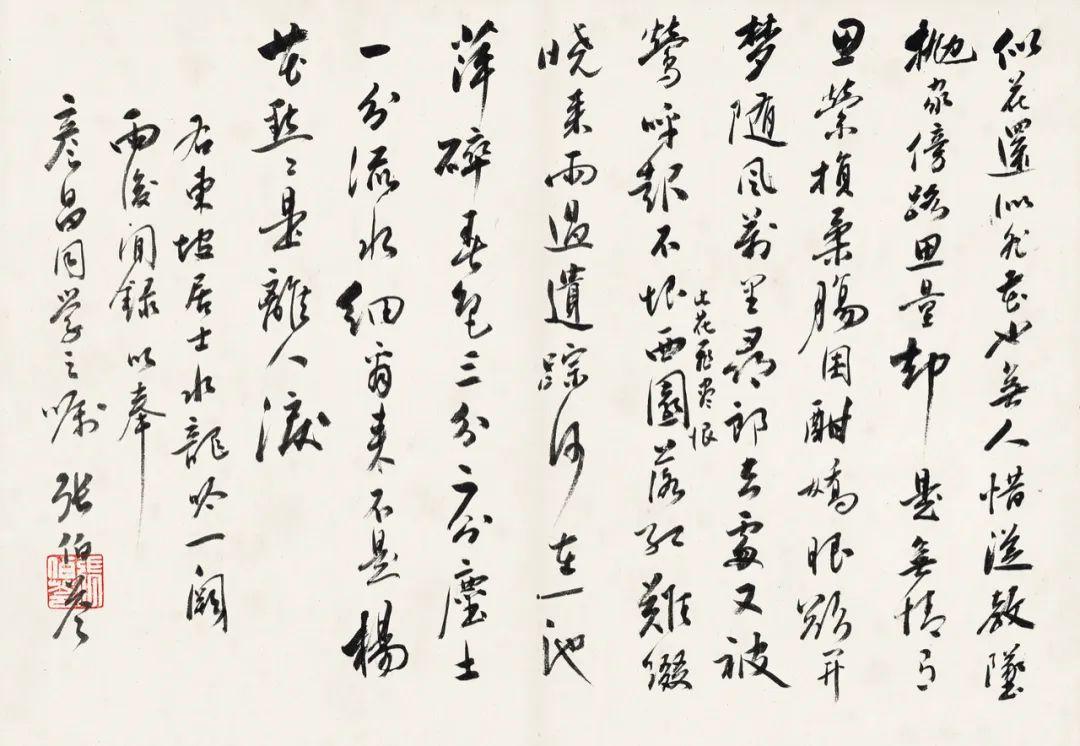 似花還似非花也無人惜從教墜
抛家傍路思量却是無情有
思縈損柔腸困酣嬌眼欲开
梦随風萬里尋郎去處又被
鶯呼起不恨西園落紅難綴
此花飛盡恨
晓来雨過遺踪何在一池
萍碎春色三分二分塵土
一分流水細看来不是楊
花點〻是離人淚
右東坡居士水龍吟一闋
雨後閒録以奉
彦昌同学之嘱 张伯